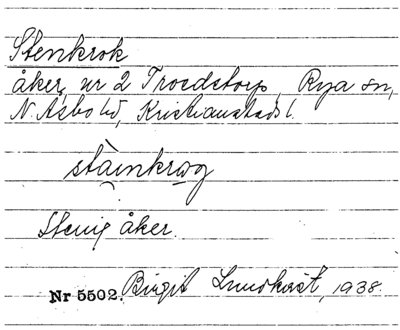 Stenkrok
åker, nr 2 Troedstorp, Rya sn,
N. Åsbo hd, Kristianstads l.
stàinkrog
Stenig åker.
Nr 5502. Birgit Lundkvist, 1938.